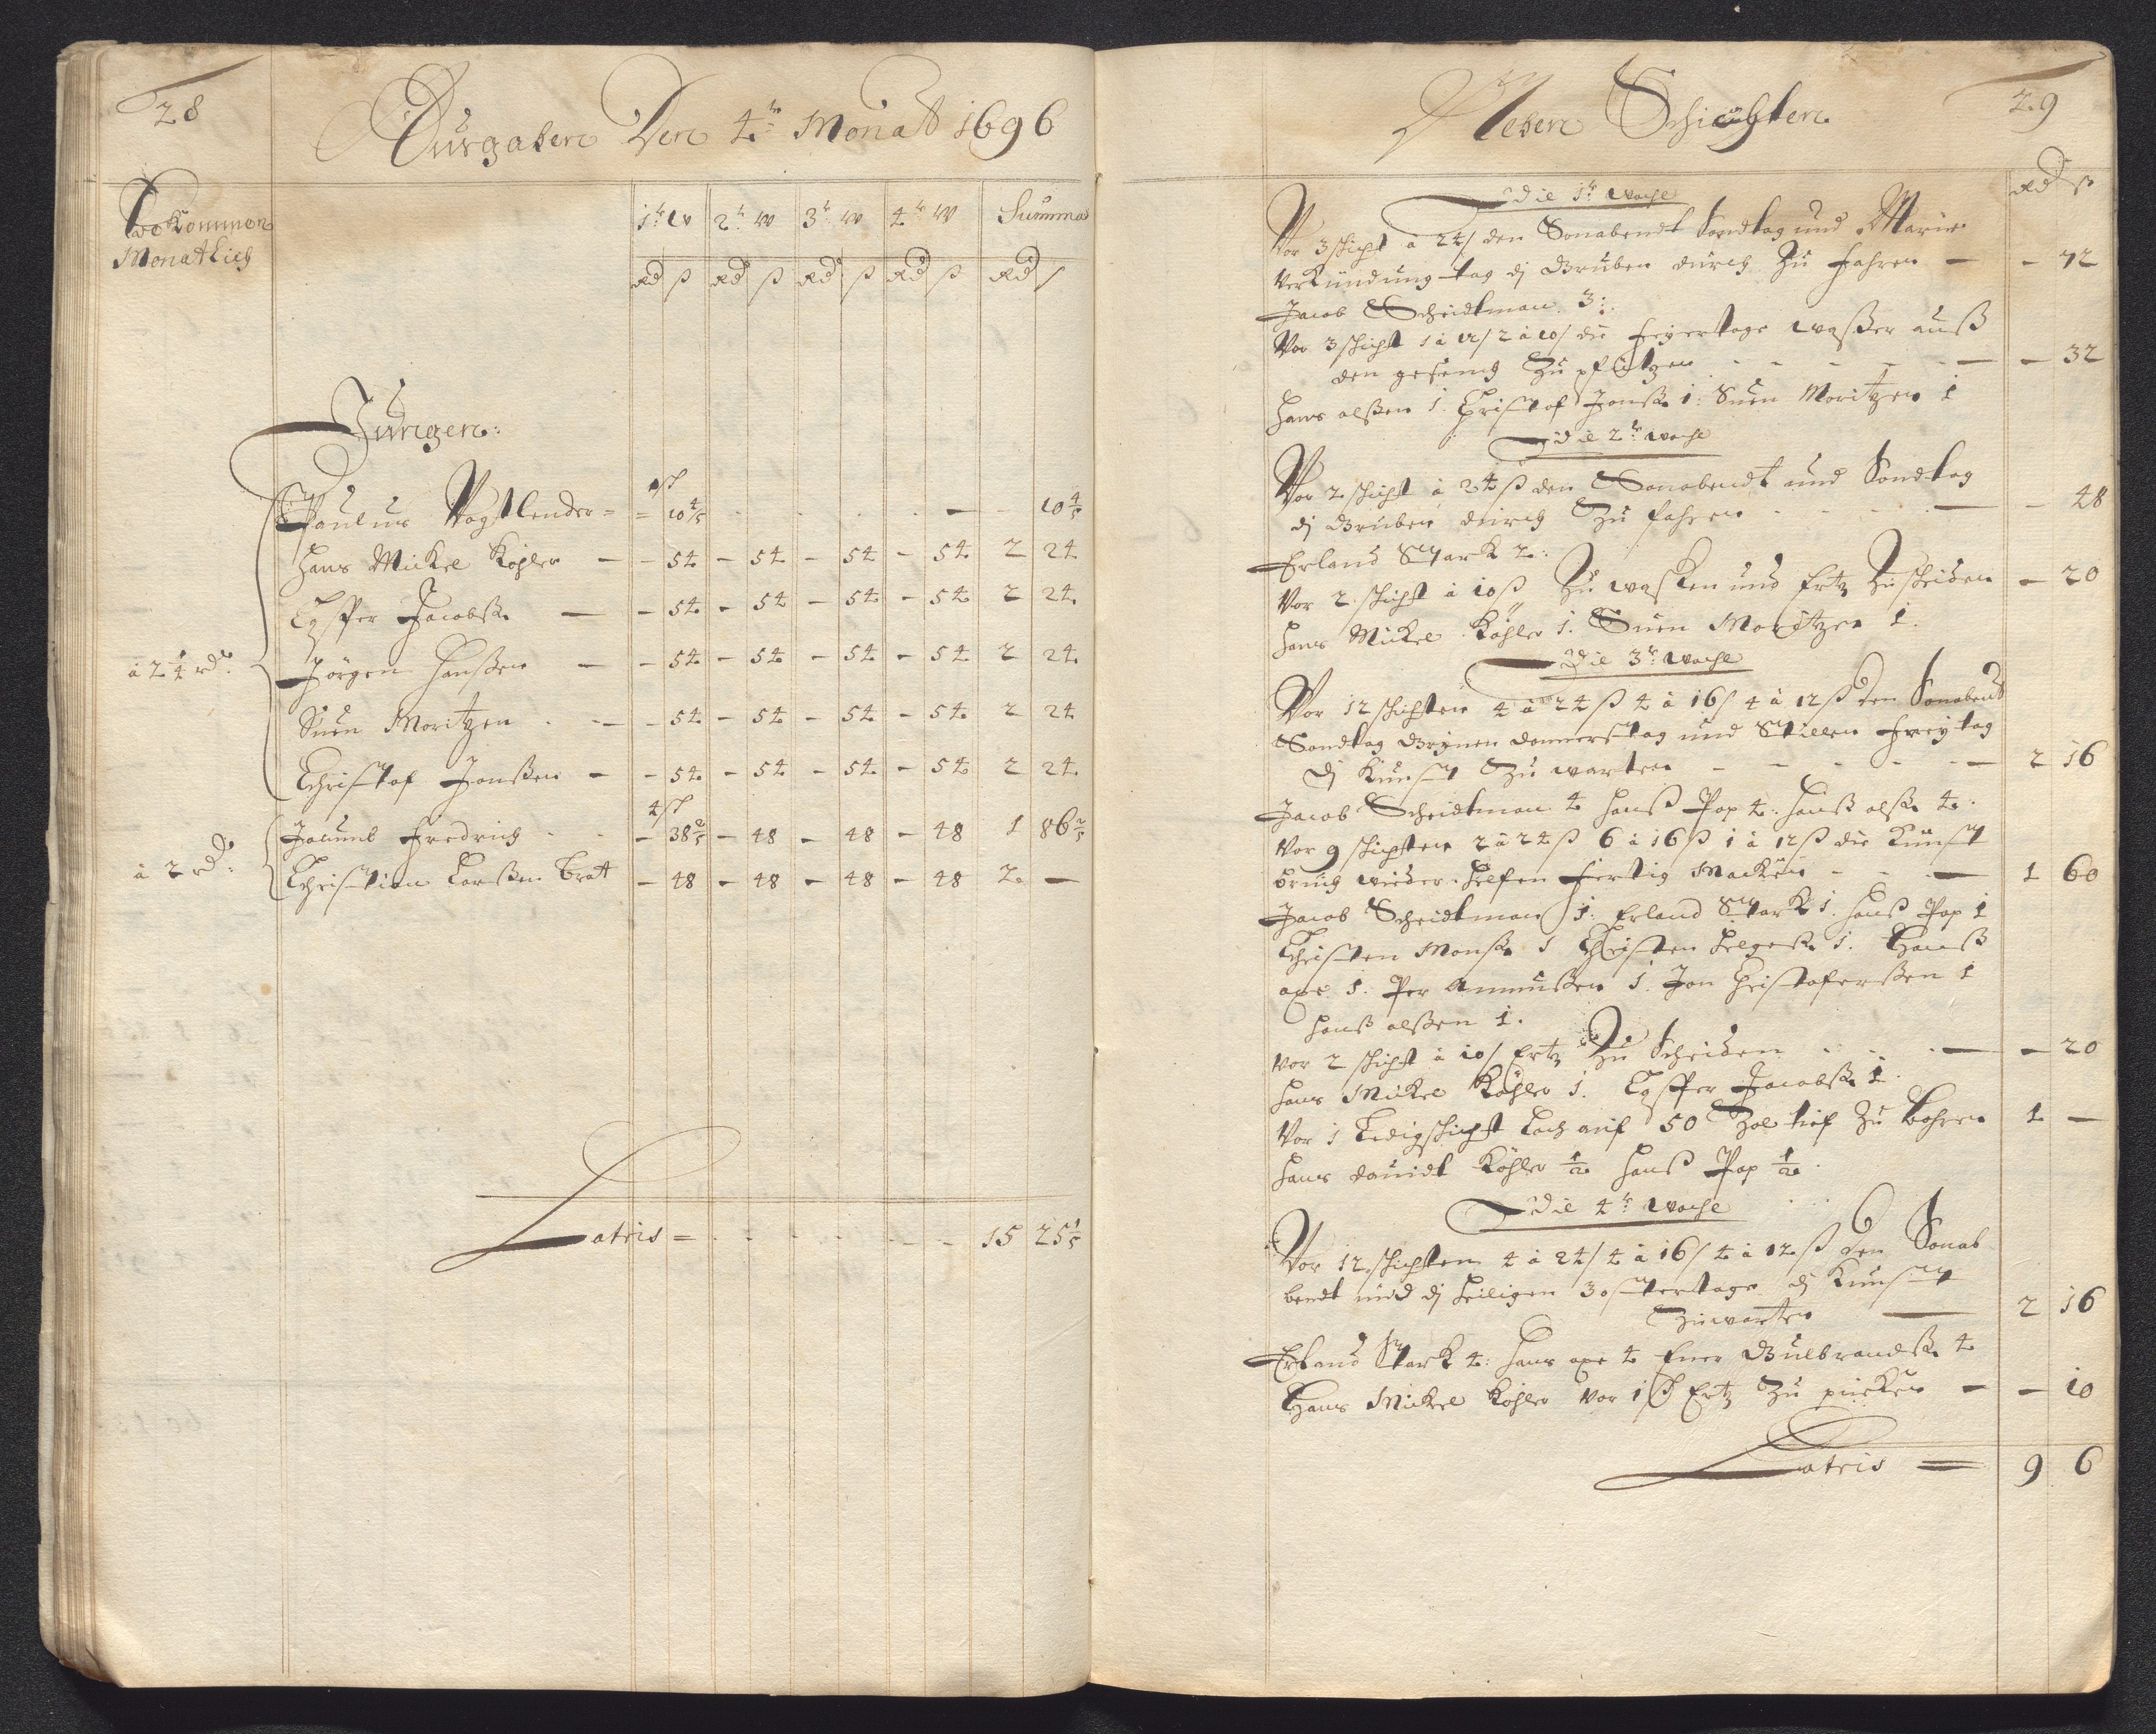 28
Ausgaben Den 4tr Monat 1696
Bekommen
Monatlich
1tr W 2tr W 3tr W 4tr W Summa
Rd ß Rd ß Rd ß Rd ß Rd ß
Jungen:
Paulus Vogtlender = = 10 4/5 10 4/5
Hans Mickel Köhler — - 54 - 54 - 54 - 54 2 24
Jacobß. — - 54 - 54 - 54 - 54 2 24
à 2 1/4 rdr. Jörgen Hanßen — - 54 - 54 - 54 - 54 2 24
Suen Moritzen — - 54 - 54 - 54 - 54 2 24
Christof Jonßen — - 54 - 54 - 54 - 54 2 24
4 sch
Fredrich - 38 2/5 - 48 - 48 - 48 1 86 2/5
à 2 rdr. Christian Larßen Bratt - 48 - 48 - 48 - 48 2 —
Latris = 15 25 1/5
29
Neben Schichten
Rd ß
Die 1tr Woche
Vor 3 schicht à 24 ß den Sonabendt Sondtag und Marie
Verkündung tag dj Gruben durch Zu fahren — - 72
Jacob Scheidtman 3:
Vor 3 schicht 1 à 12 ß 2 à 10 ß die feyertage waßer auß
den gesenck Zu pfützen — - 32
Hans olßen 1. Christof Jonß. 1: Suen Moritzen 1
Die 2tr Woche
Vor 2 schicht à 24 ß den Sonabendt und Sondtag
dj Gruben durch Zu fahren — - 48
Erland Stark 2:
Vor 2 schicht à 10 ß Zu wasken und Ertz Zu scheiden - 20
Hans Mickel Köhler 1. Suen Moritzen 1.
Die 3tr Woche
Vor 12 schichten 4 à 24 ß 4 à 16 ß 4 à 12 ß den Sonabend
Sondtag Grünen donnerstag und Stillen Freytag
dj Kunst Zu warten — 2 16
Jacob Scheidtman 4 Hanß Pop 4. Hanß olß. 4.
Vor 9 schichten 2 à 24 ß 6 à 16 ß 1 à 12 ß die Kunst
bruch wieder helfen fertig Macken — 1 60
Jacob Scheidtman 1. Erland Stark 1. Hanß Pop 1
Christen Monß. 1 Christen Helgeß. 1. Hanß
axe 1. Per Amundßen 1. Jon Christoferßen 1
Hanß olßen 1.
Vor 2 schicht à 10 ß Ertz Zu Scheiden — - 20
Hans Mickel Köhler 1. Jacobß. 1.
Vor 1 Ledigschicht Loch auf 50 Zol tief Zu bohren 1 —
Hans dauidt Köhler 1/2 Hanß Pop 1/2.
Die 4tr Woche
Vor 12 schichten 4 à 24 ß 4 à 16 ß 4 à 12 ß den Sonab
bendt und dj heiligen 3 ostertage dj Kunst
Zu warten — 2 16
Erland Stark 4: Hans axe 4 Gulbrandß. 4
Hans Mickel Köhler vor 1 sch Ertz Zu pucken — - 10
Latris = 9 6